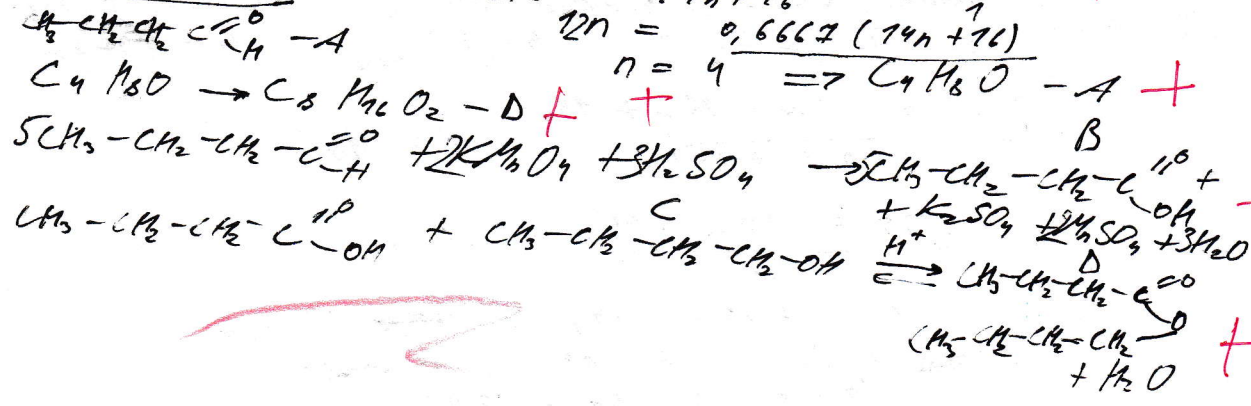 12n = 0,6667 (14n + 16)
CH3-CH2-CH2 C=O -H - A
n = 4 => C4H8O - A +
C4H8O → C8H16O2 - D + +
B
5CH3-CH2-CH2-C=O -H + 2KMnO4 + 3H2SO4 → 5CH3-CH2-CH2-C=O -OH +
+ K2SO4 + 2MnSO4 + 3H2O
C
CH3-CH2-CH2-C=O -OH + CH3-CH2-CH2-CH2-OH ⇌ H+ CH3-CH2-CH2-C=O
D
O
CH3-CH2-CH2-CH2 +
+ H2O